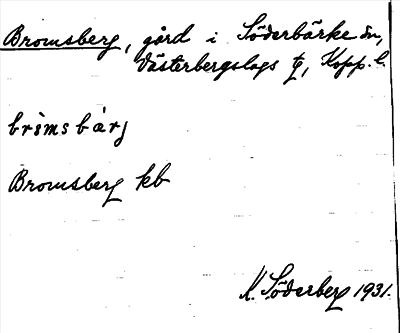 Bromsberg, gård i Söderbärke sn,
Västerbergslags tg, Kopp. l.
brimsbärj
Bromsberg kb
K. Söderberg 1931.